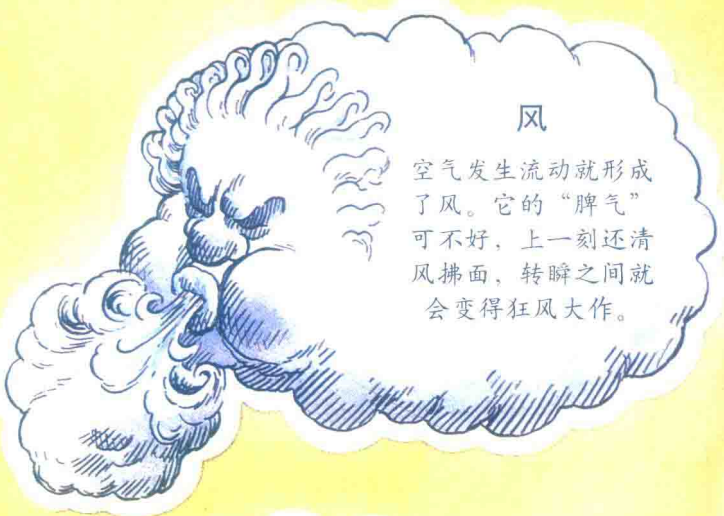 风
空气发生流动就形成
了风。它的“脾气”
可不好，上一刻还清
风拂面，转瞬之间就
会变得狂风大作。